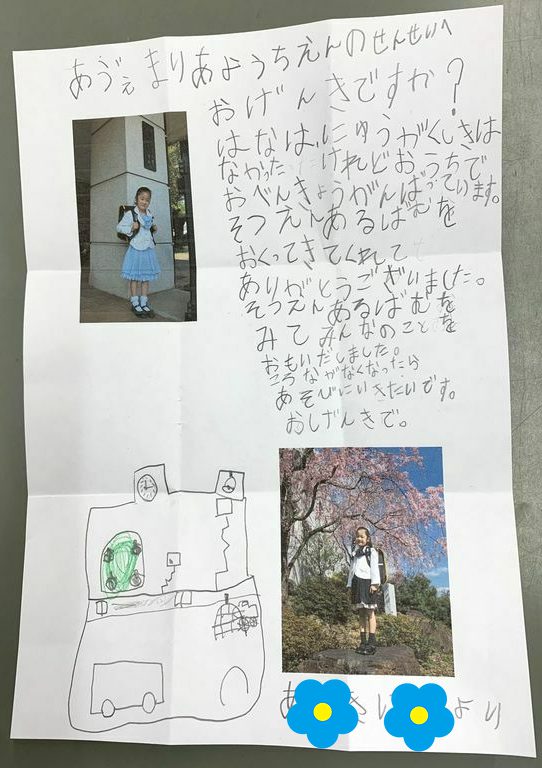 あゔぇ まりあようちえんのせんせいへ
おげんきですか?
はなは、にゅうがくしきは
なかったけれどおうちで
おべんきょうがんばっています。
そつえんあるばむを
おくってきてくれて
ありがとうございました。
そつえんあるばむを
みてみんなのことを
おもいだしました。
ころながなくなったら
あそびにいきたいです。
おしげんきで。
より